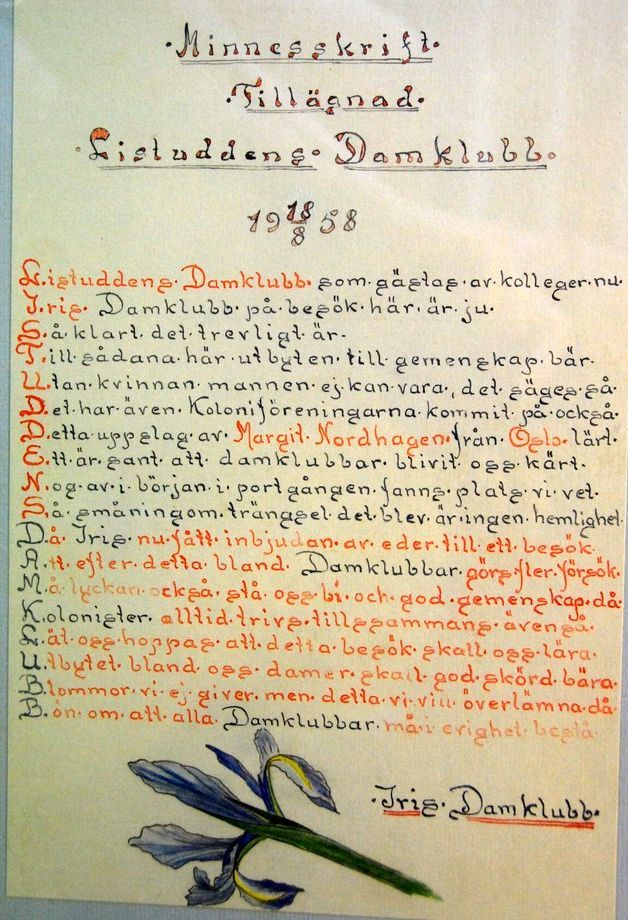 ·Minnesskrift·
·Tillägnad·
·Listuddens· Damklubb·
19 18/8 58
L.istuddens· Damklubb· som· gästas· av· kolleger· nu·
I.ris· Damklubb· på· besök· här· är· ju·
S.å klart· det· trevligt· är·
T.ill· sådana· här· utbyten· till· gemenskap· bär·
U.tan· kvinnan· mannen· ej· kan· vara·, det· säges· så·
D.et· har· även· Koloniföreningarna· kommit· på· också·
D.etta· uppslag· av· Margit· Nordhagen· från· Oslo· lärt·
E.tt· är· sant· att· damklubbar· blivit· oss· kärt·
N.og· av· i· början· i· portgången· fanns· plats· vi· vet·
S.å· småningom· trängsel· det· blev· är· ingen· hemlighet·
D.å· Iris· nu· fått· inbjudan· av· eder· till· ett· besök·
A.tt· efter· detta· bland· Damklubbar· görs· fler· försök·
M.å· lyckan· också· stå· oss· bi· och· god· gemenskap· då·
K.olonister· alltid· trivs· tillssammans· även· så·
L.åt· oss· hoppas· att· detta· besök· skall· oss· lära·
U.tbytet· bland· oss· damer· skall· god· skörd· bära·
B.lommor· vi· ej· giver· men· detta· vi· vill· överlämna· då·
B.ön· om· att· alla· Damklubbar· må· i· evighet· bestå·
·Iris· Damklubb·